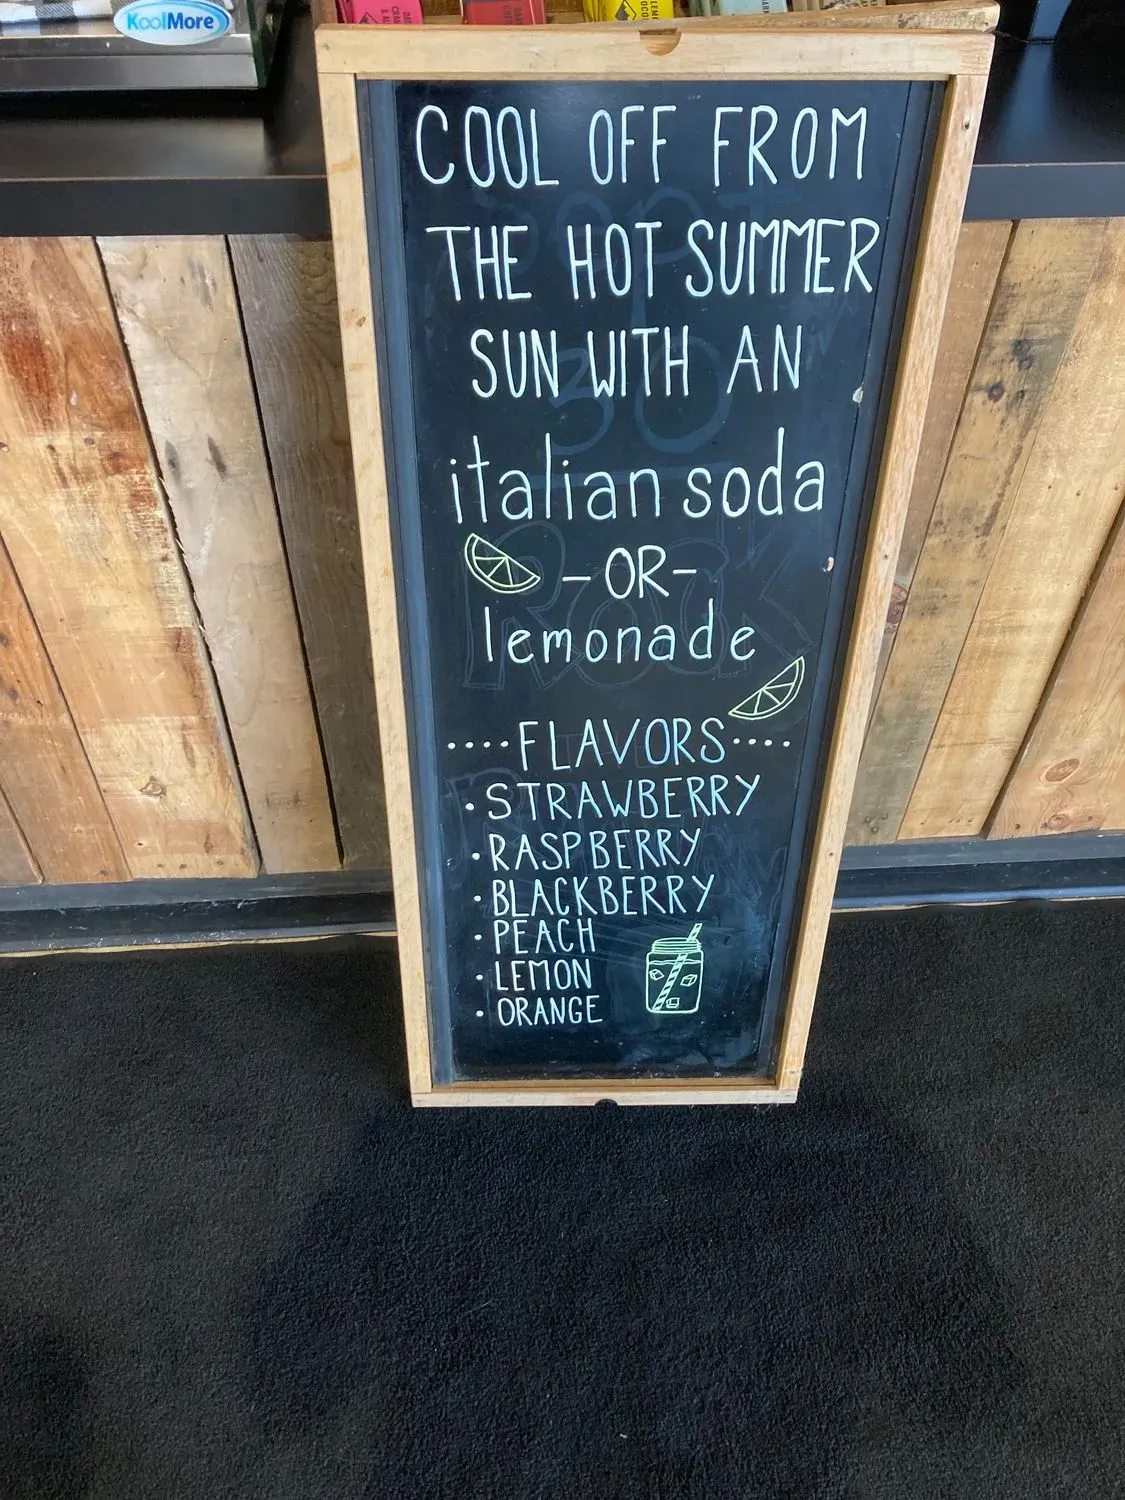 KoolMore
COOL OFF FROM
THE HOT SUMMER
SUN WITH AN
italian soda
-OR-
lemonade
....FLAVORS....
· STRAWBERRY
· RASPBERRY
· BLACKBERRY
· PEACH
· LEMON
· ORANGE